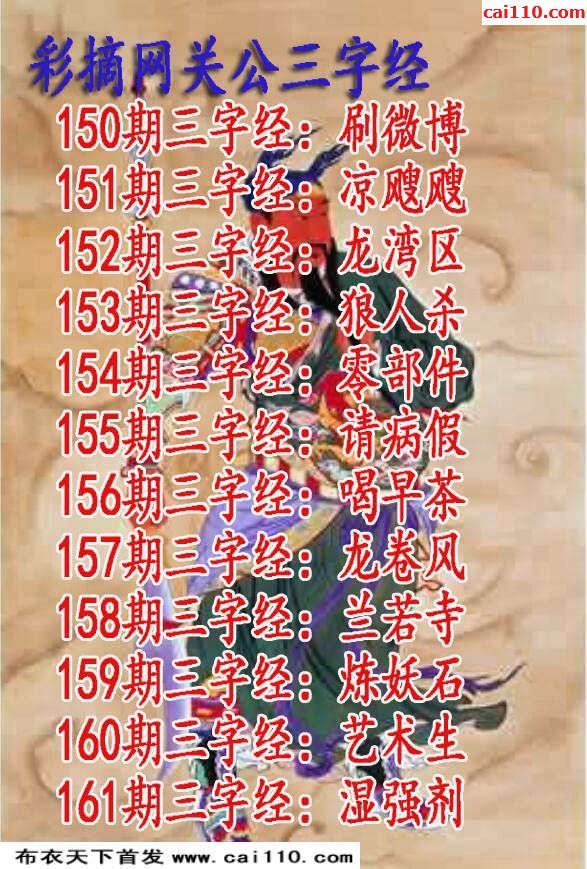 cai110.com
彩摘网关公三字经
150期三字经：刷微博
151期三字经：凉飕飕
152期三字经：龙湾区
153期三字经：狼人杀
154期三字经：零部件
155期三字经：请病假
156期三字经：喝早茶
157期三字经：龙卷风
158期三字经：兰若寺
159期三字经：炼妖石
160期三字经：艺术生
161期三字经：湿强剂
布衣天下首发 www.cai110.com